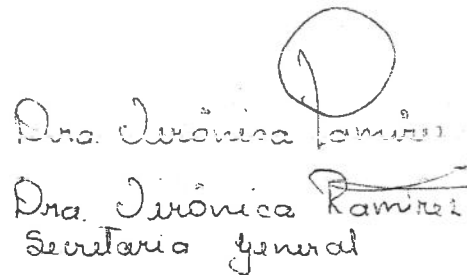 Dra. Verônica Ramirez
Dra. Verônica Ramirez
Secretaria general